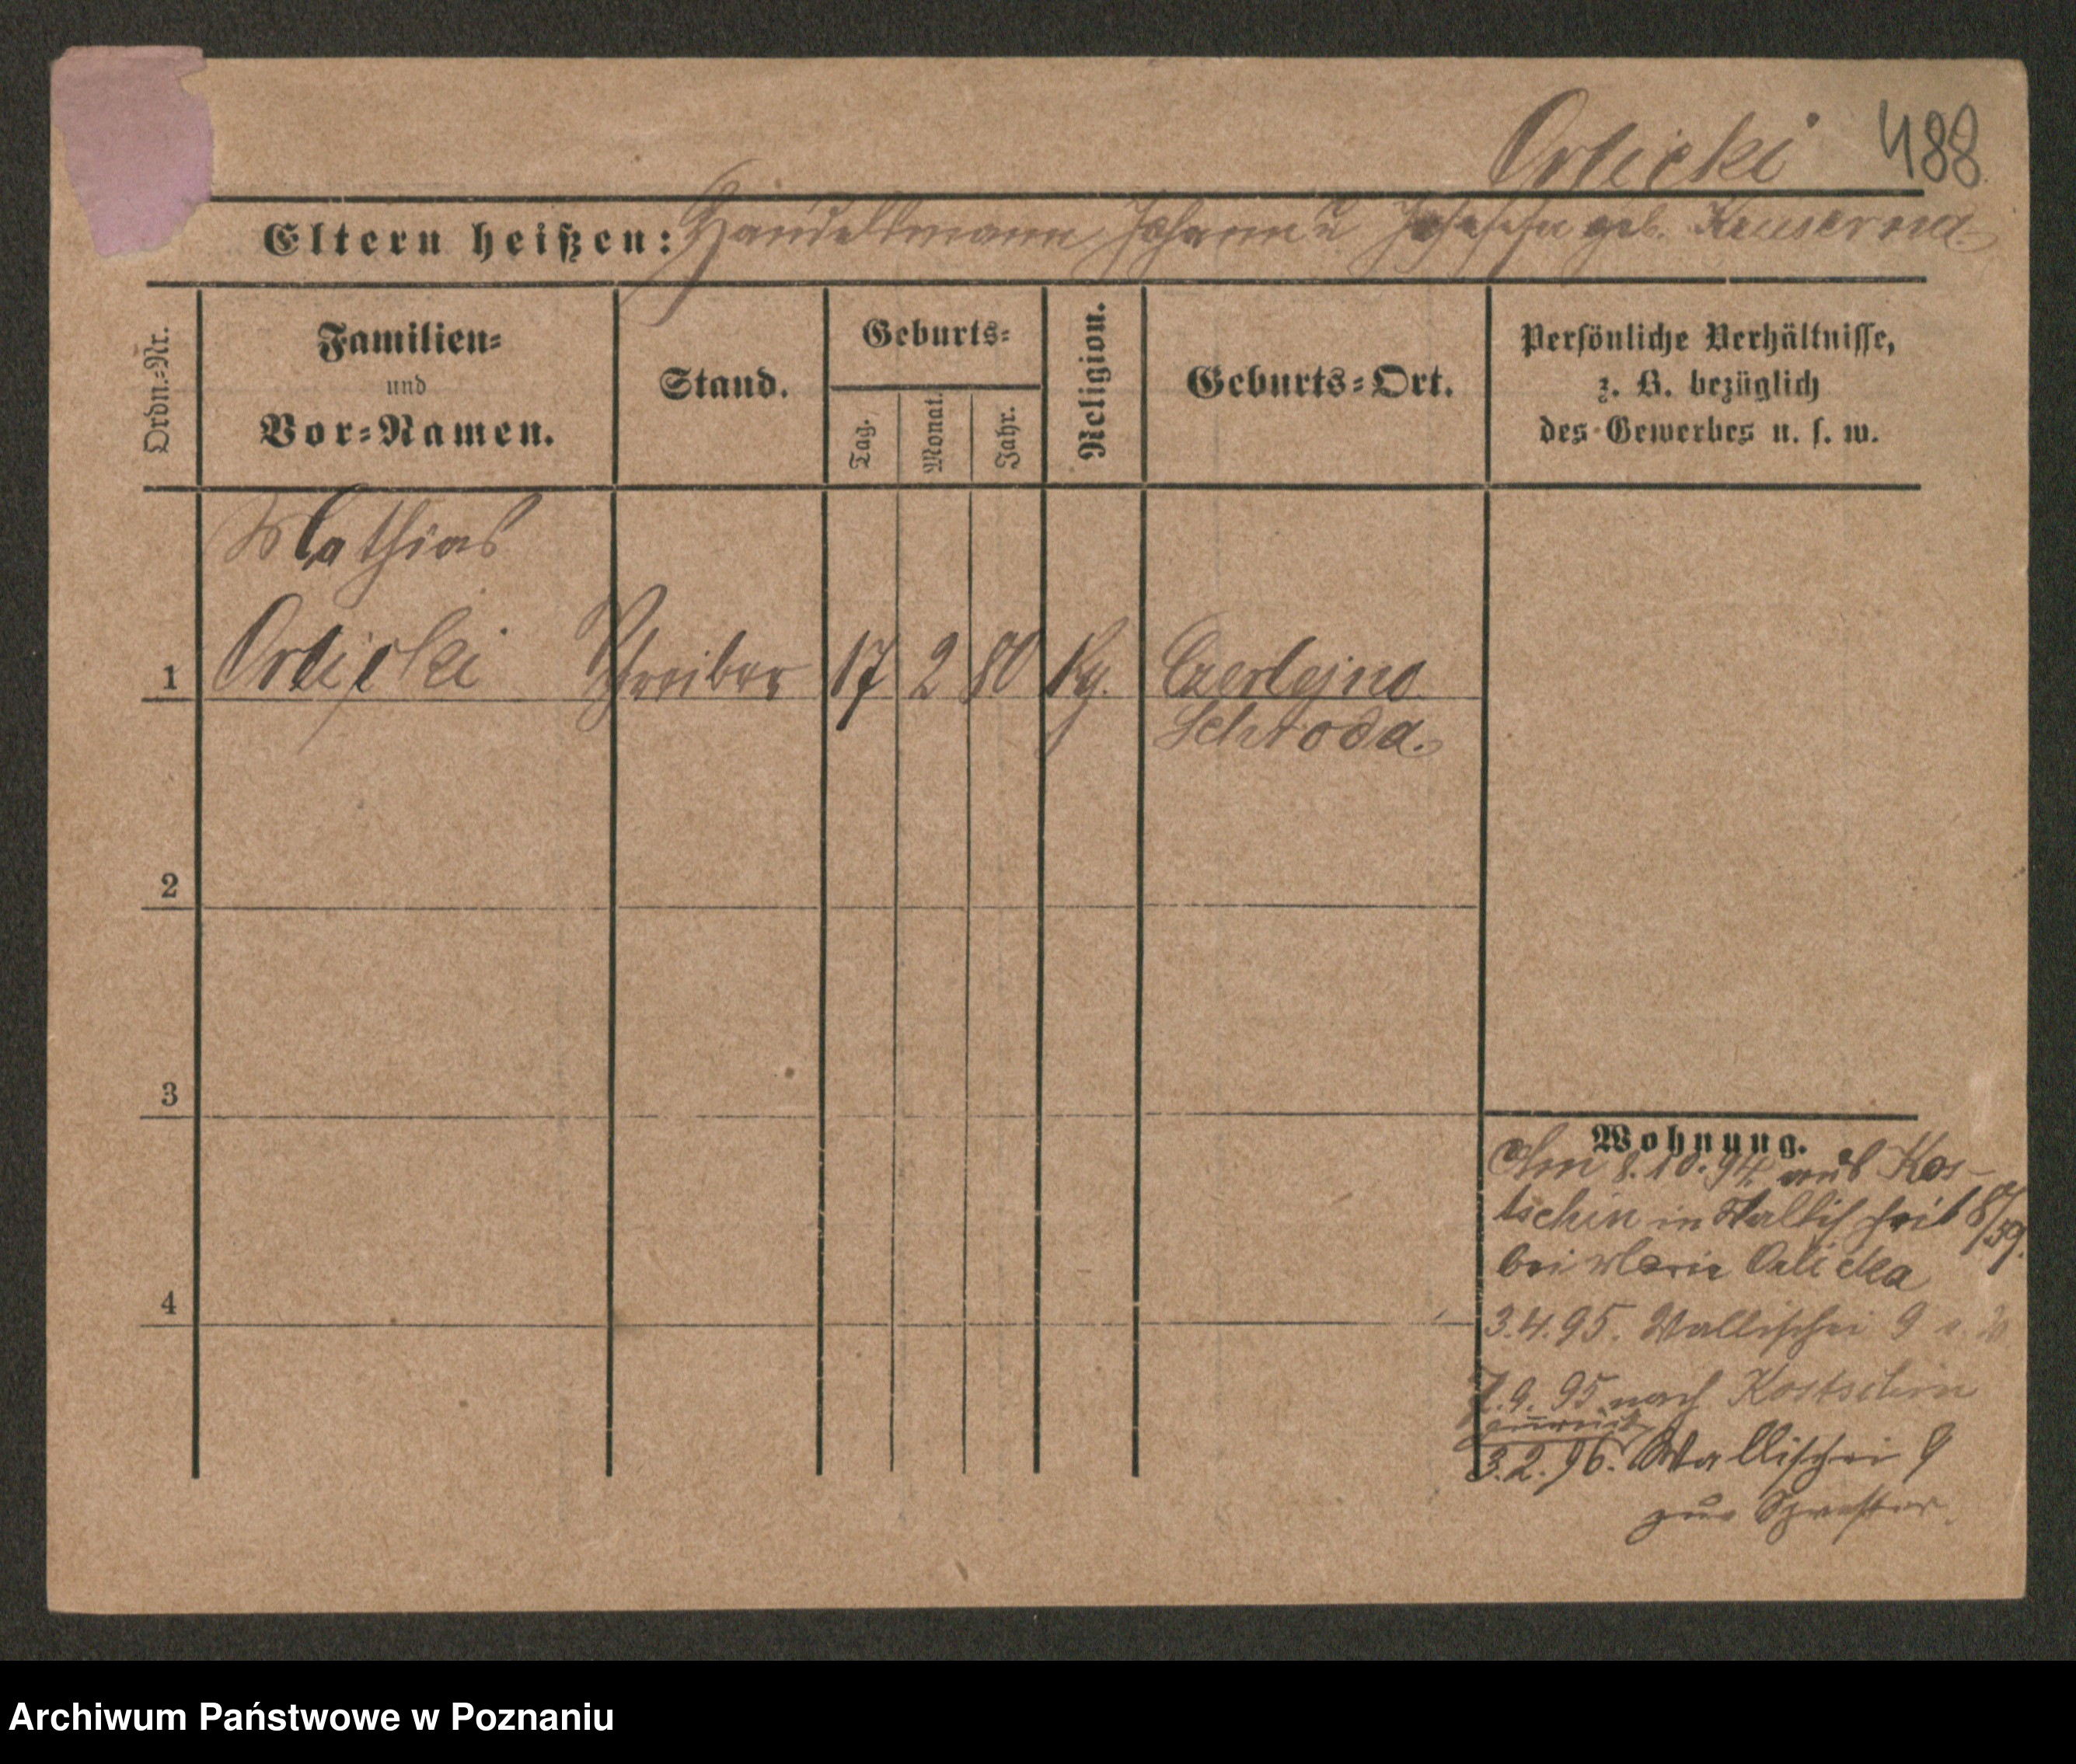 Orlicki 488
Eltern heißen: Handelsmann Johann u Josefa geb.
Ordn.-Nr.
Familien-
und
Vor-Namen.
Stand.
Geburts-
Tag.
Monat.
Jahr.
Religion.
Geburts-Ort.
Persönliche Verhältnisse,
z. B. bezüglich
des Gewerbes u. s. w.
Mathias
1 Orlicki Schreiber 17 2 80 kg. Czerlejno
Schroda.
2
3
4
Wohnung.
Am 8.10.94 aus Kos-
tschin in
bei Marie Orlicka
3.4.95. Wallischei 9
7.9.95 nach Kostschin
zurück
3.2.96. Wallischei 9
zur Schwester.
Archiwum Państwowe w Poznaniu